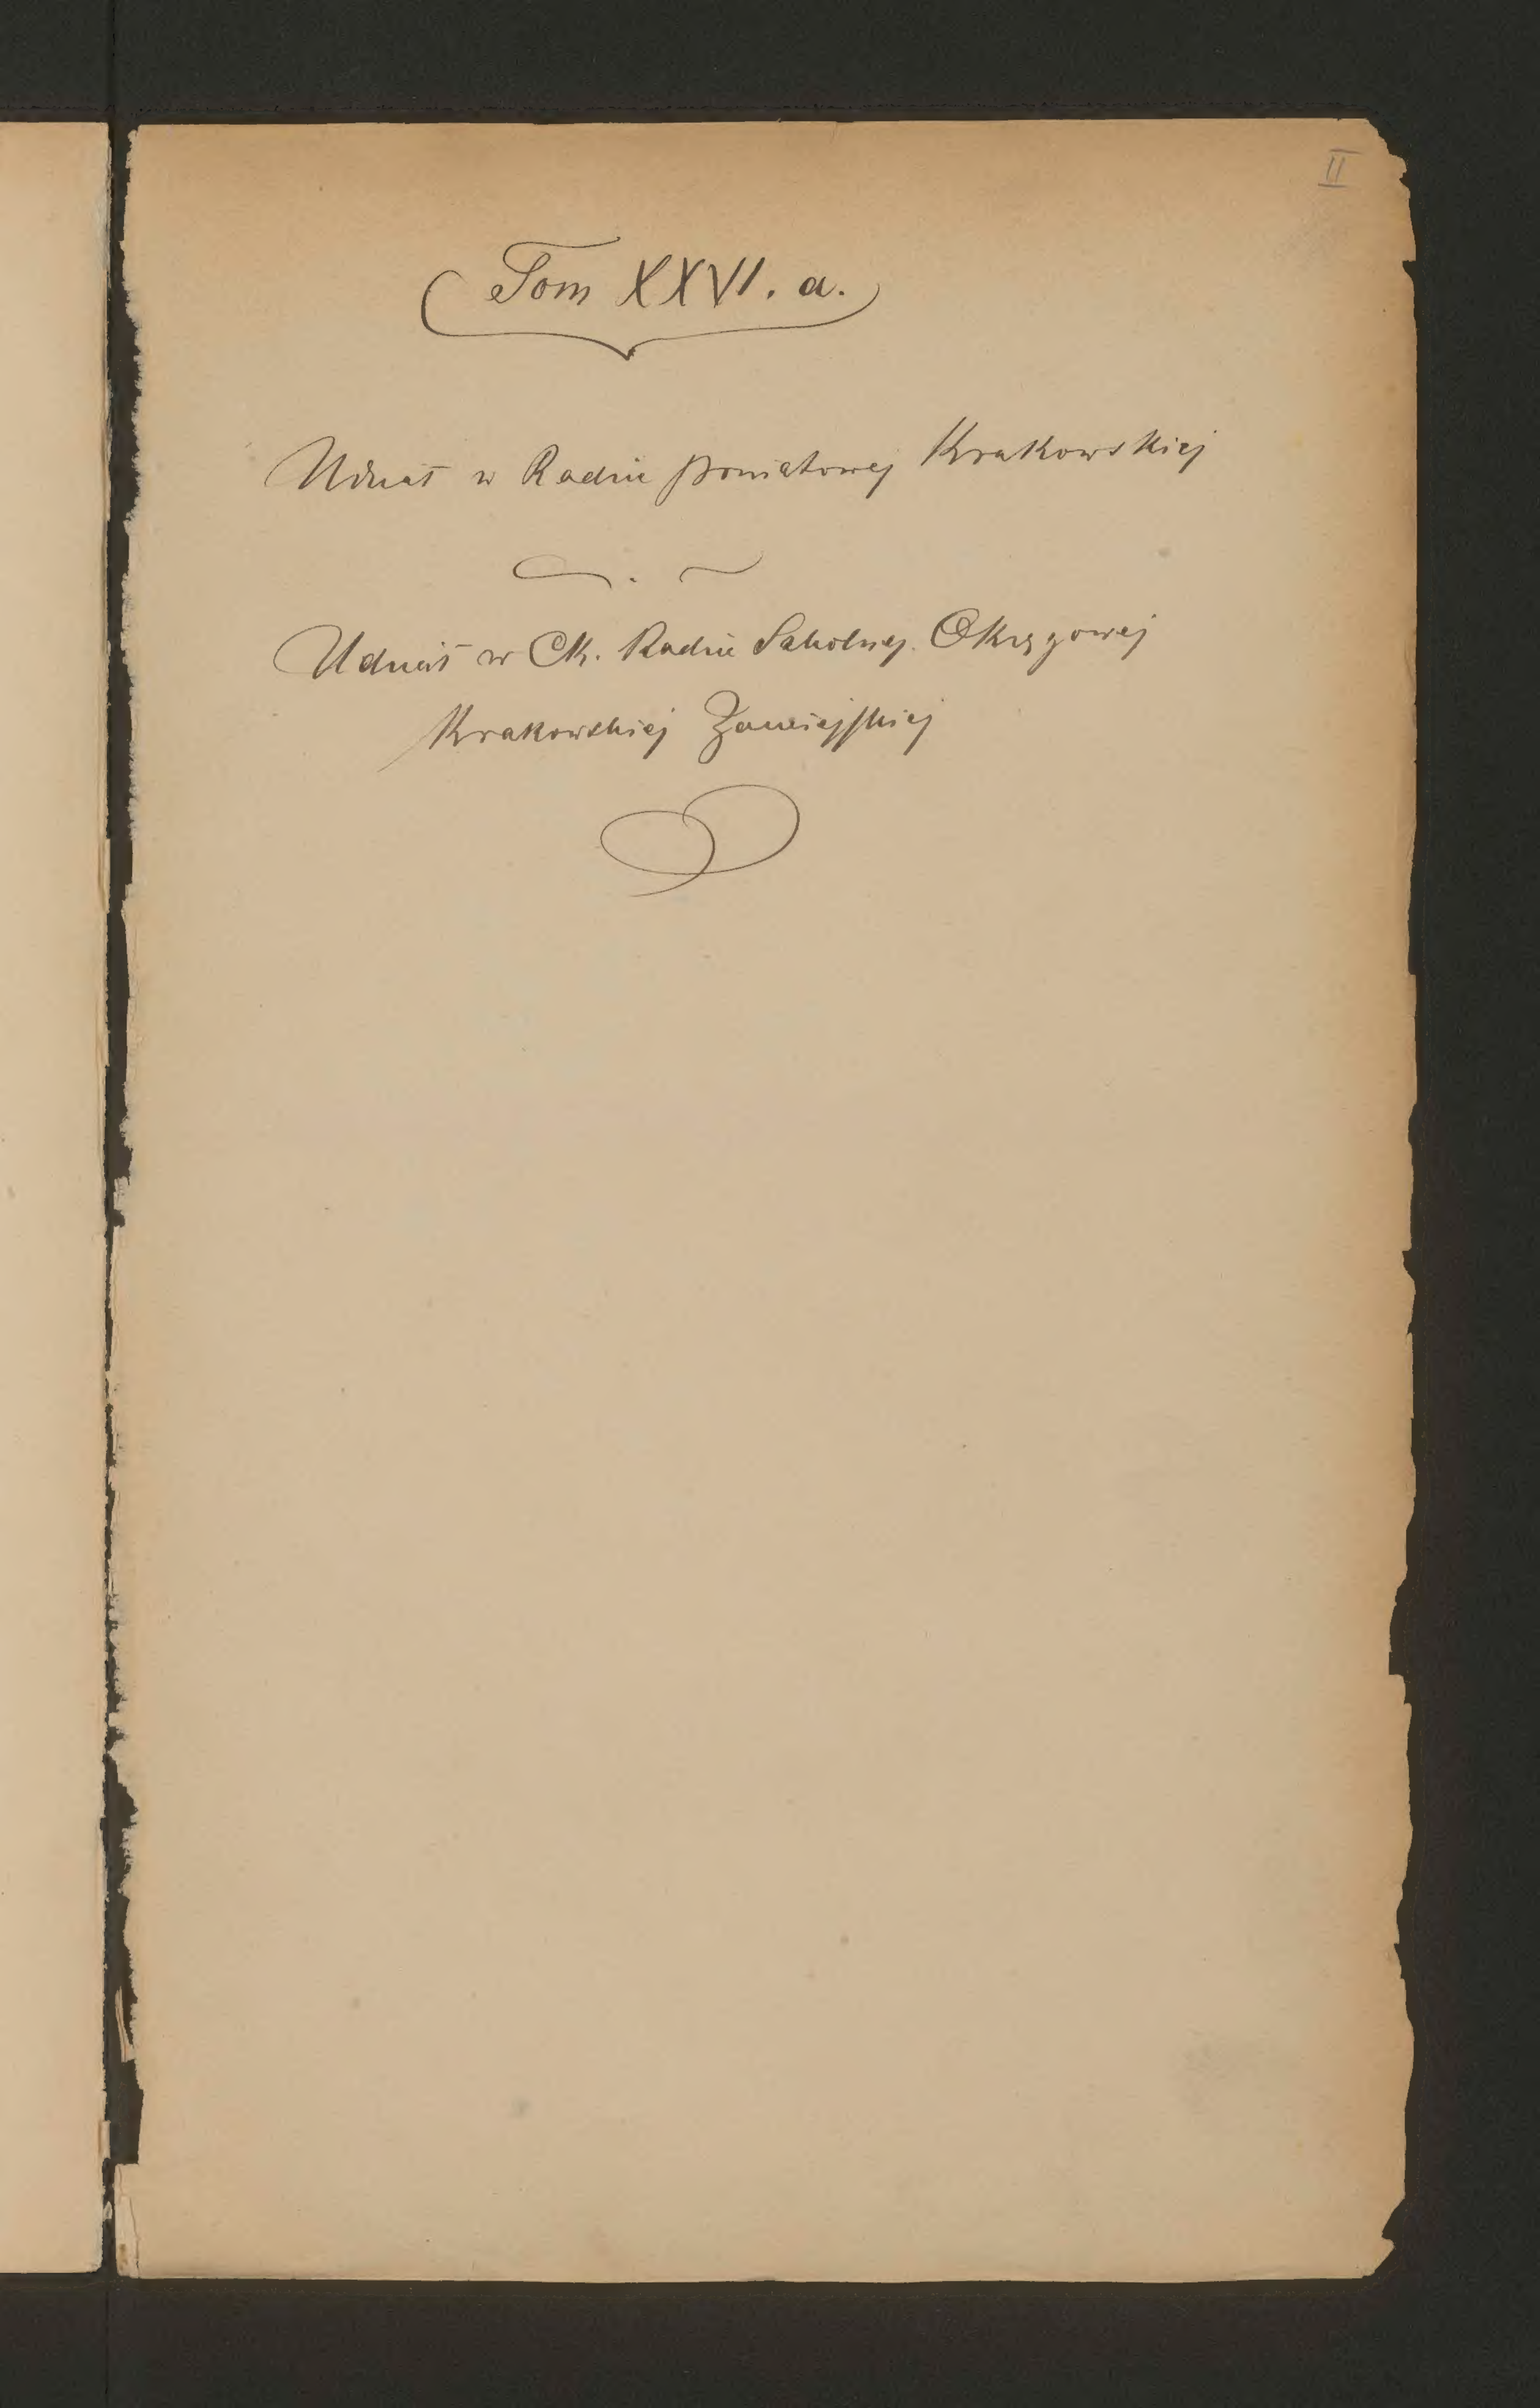 II
Tom XXVI. a.
Udział w Radzie powiatowej Krakowskiej
Udział w Ck. Radzie Szkolnej Okręgowej
Krakowskiej Zamiejskiej